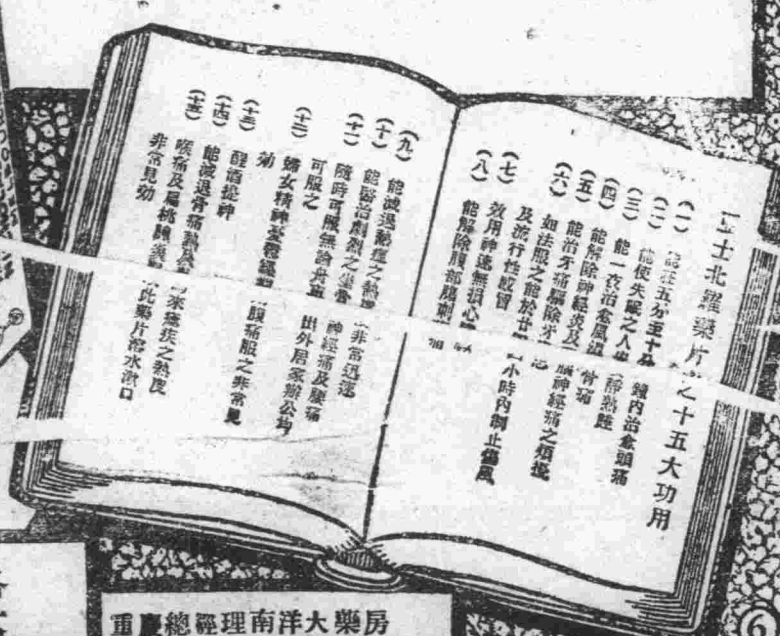 士北羅藥片之十五大功用
(一) 能在五分至十分鐘內治愈頭痛
(二) 能使失眠之人酣熟睡
(三) 能一夜治愈風濕骨痛
(四) 能解除神經炎及
(五) 能治牙痛驅除牙神經痛之煩擾
(六) 如法服之能於廿四小時內制止傷風
及流行性感冒
(七) 效用神速無損心
(八) 能解除腹部
(九) 能減退熱症之熱非常迅速
(十) 能醫治劇烈之坐骨神經痛及腰痛
(十一) 隨時可服無論舟車出外居家辦公均
可服之
(十二) 婦女精神腹痛服之非常見
効
(十三) 醒酒提神
(十四) 能減退骨痛熱及瘧疾之熱度
(十五) 喉痛及扁桃腺炎此藥片溶水漱口
非常見効
重慶總經理南洋大藥房
6